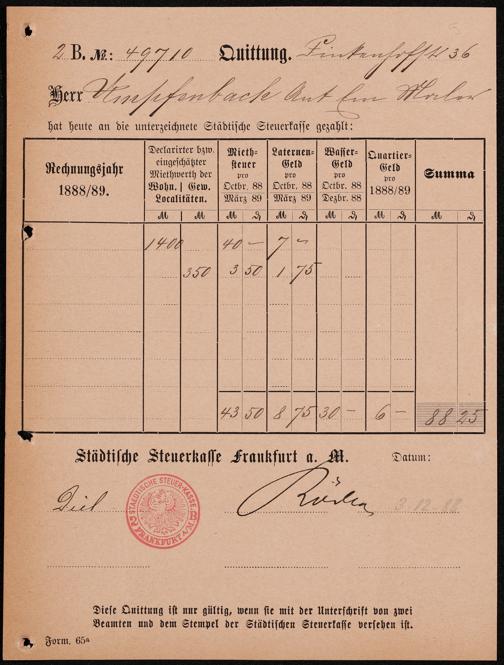 2 B. No: 49710 Quittung. Finkenhofstr 36
Herr Umpfenbach Ant Em Maler
hat heute an die unterzeichnete Städtische Steuerkasse gezahlt:
Rechnungsjahr 1888/89.
Declarirter bzw. eingeschätzter Miethwerth der Wohn. | Gew. Localitäten.
Miethsteuer pro Octbr. 88 März 89
Laternen-Geld pro Octbr. 88 März 89
Wasser-Geld pro Octbr. 88 Dezbr. 88
Quartier-Geld pro 1888/89
Summa
ℳ ℳ ℳ ₰ ℳ ₰ ℳ ₰ ℳ ₰ ℳ ₰
1400 40 – 7 –
350 3 50 1 75
43 50 8 75 30 – 6 – 88 25
Städtische Steuerkasse Frankfurt a. M. Datum:
Diel
STAEDTISCHE STEUER-KASSE
FRANKFURT A/M
2 B
3.12.88
Diese Quittung ist nur gültig, wenn sie mit der Unterschrift von zwei
Beamten und dem Stempel der Städtischen Steuerkasse versehen ist.
Form. 65a